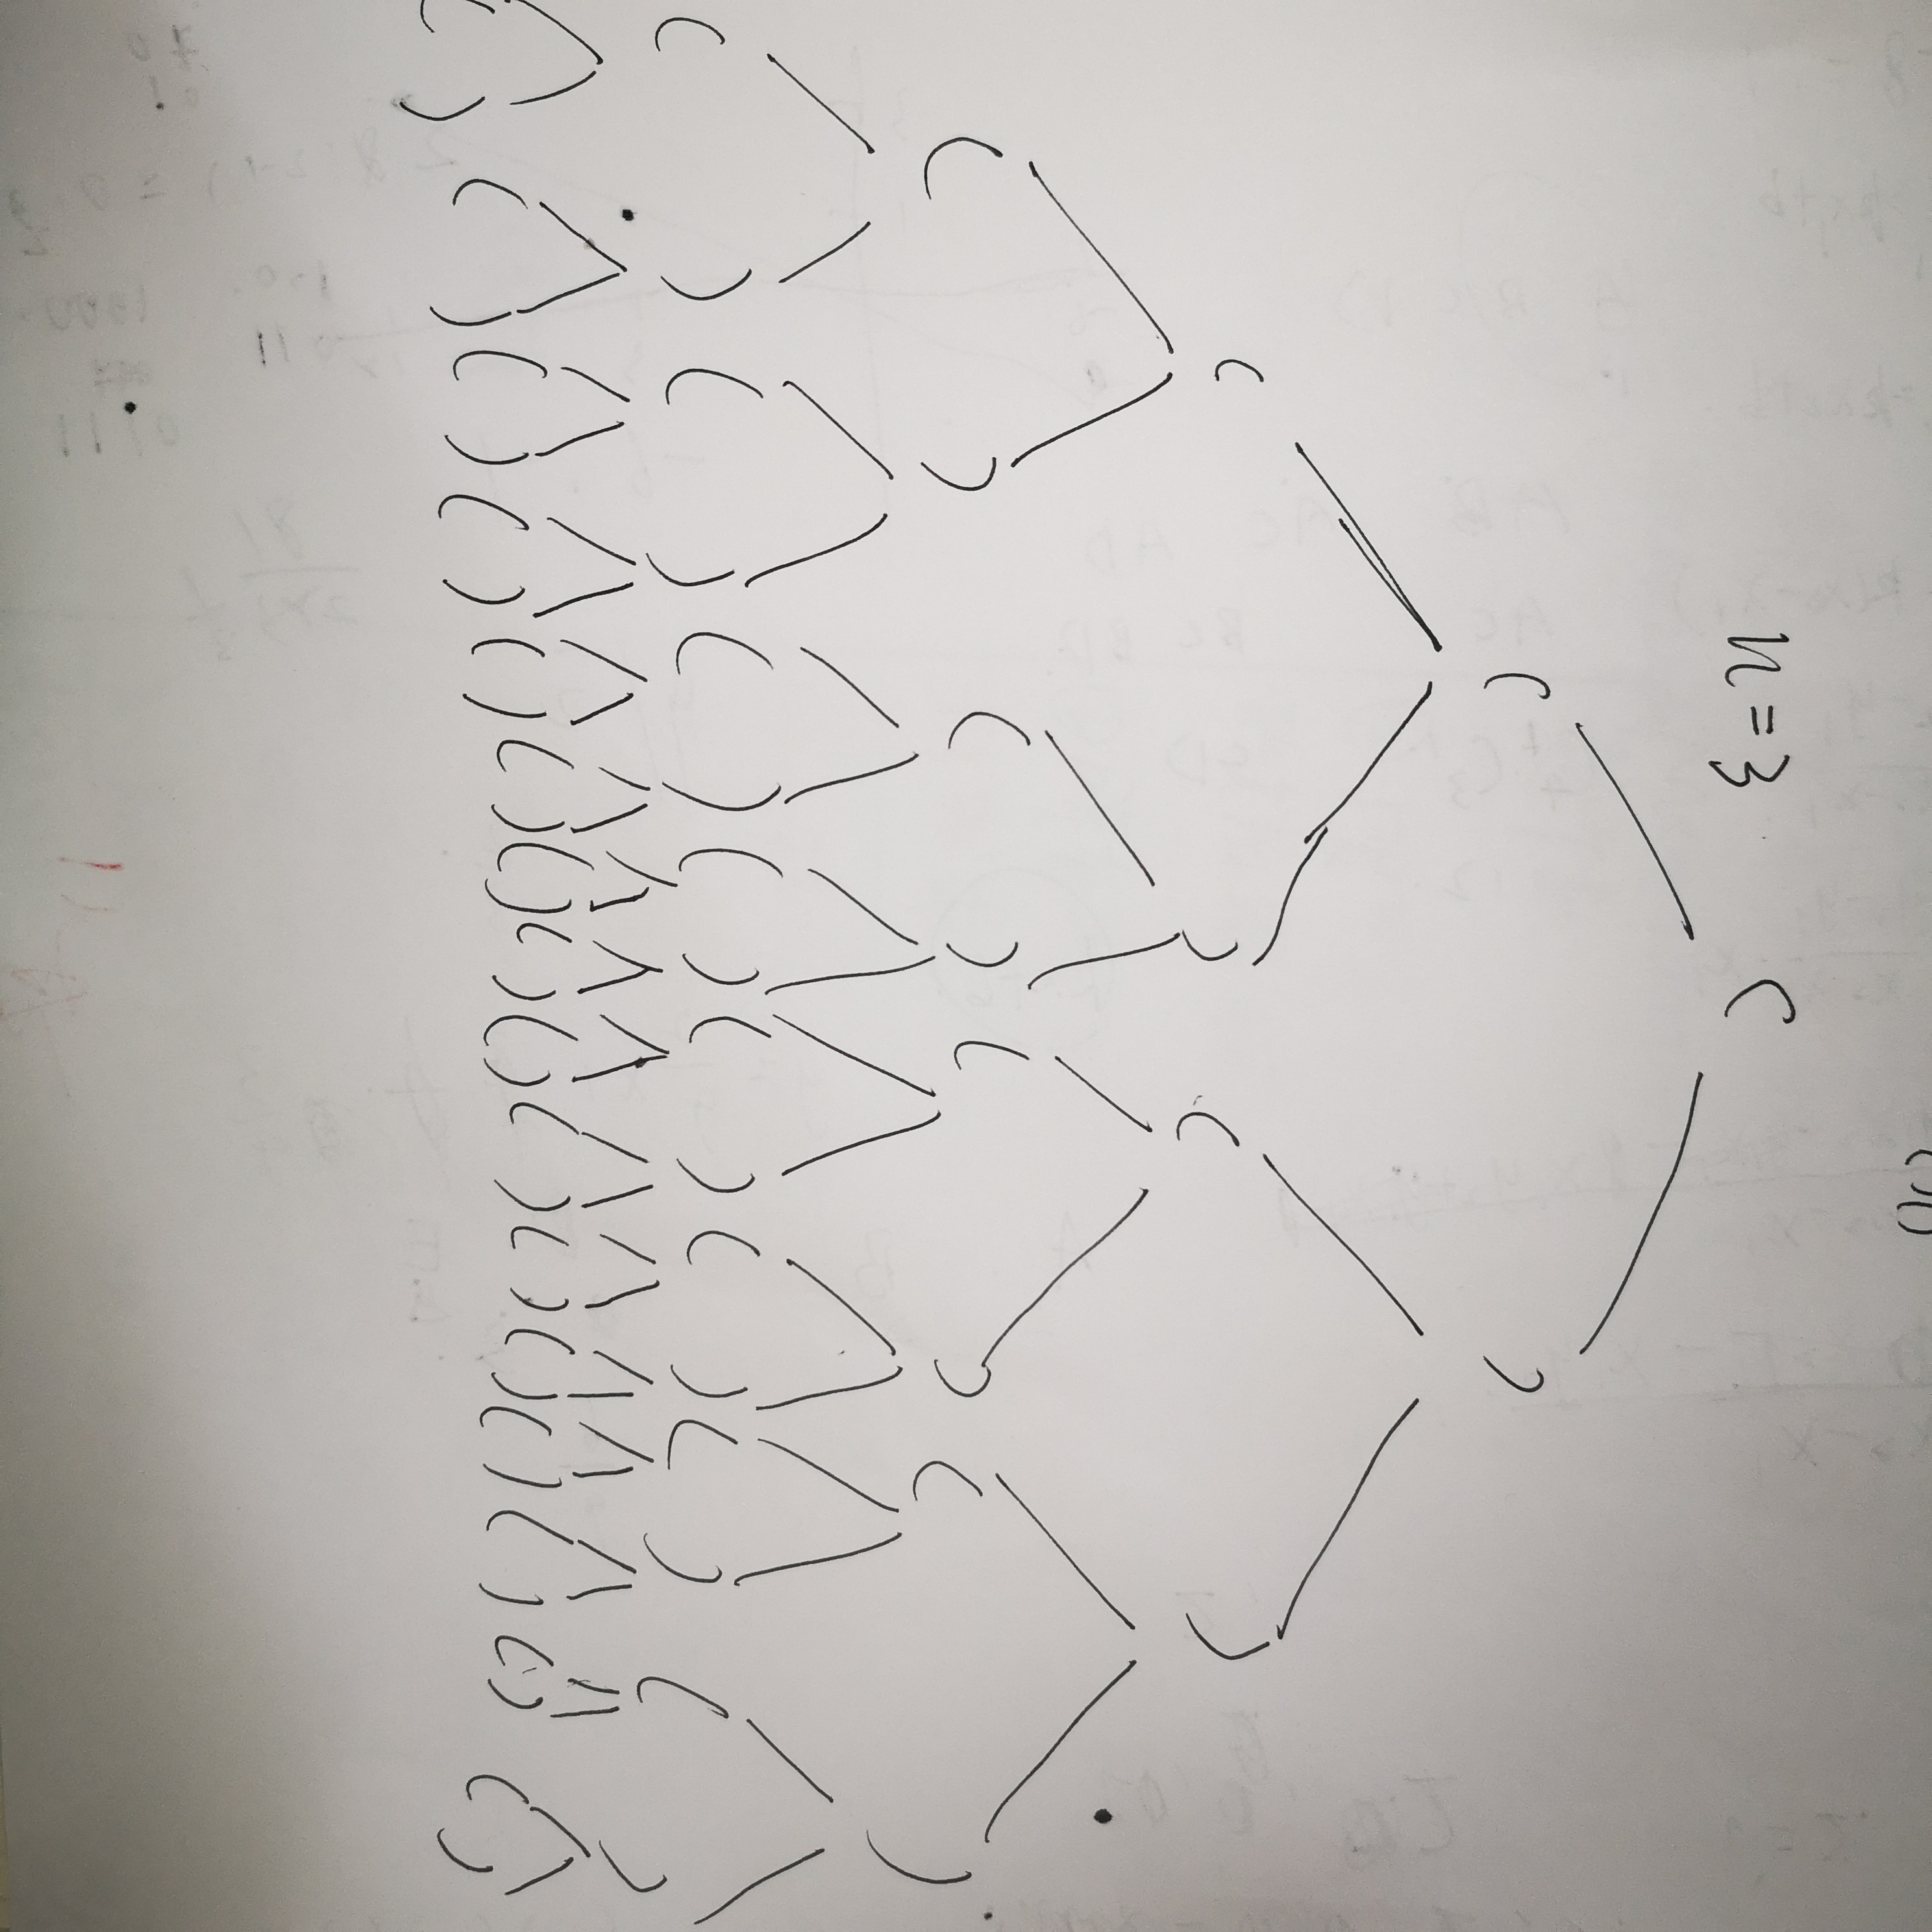 ()()
n=3 (
( )
( ) ( )
( ) ( ) ( ) ( )
( ) ( ) ( ) ( ) ( ) ( ) ( ) ( )
( ) ( ) ( ) ( ) ( ) ( ) ( ) ( ) ( ) ( ) ( ) ( ) ( ) ( ) ( ) ( )